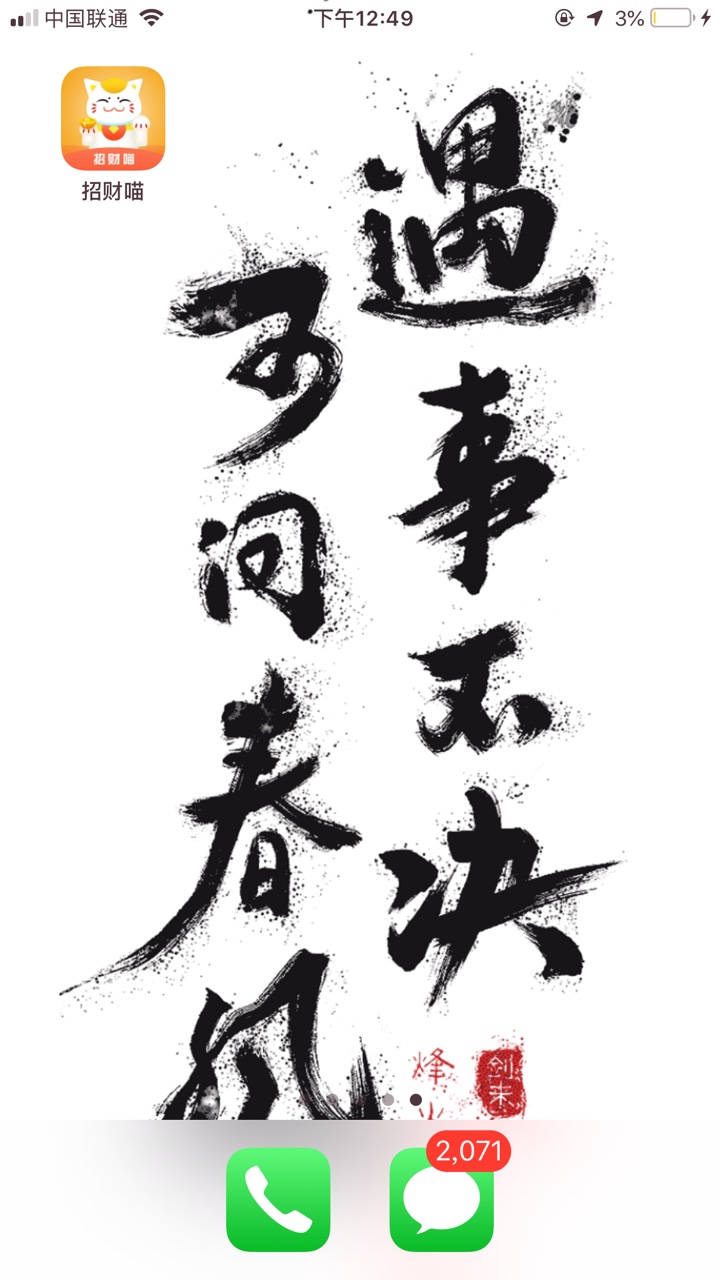 中国联通
下午12:49
3%
招财喵
招财喵
遇事不决
可问春风
烽火
剑来
2,071